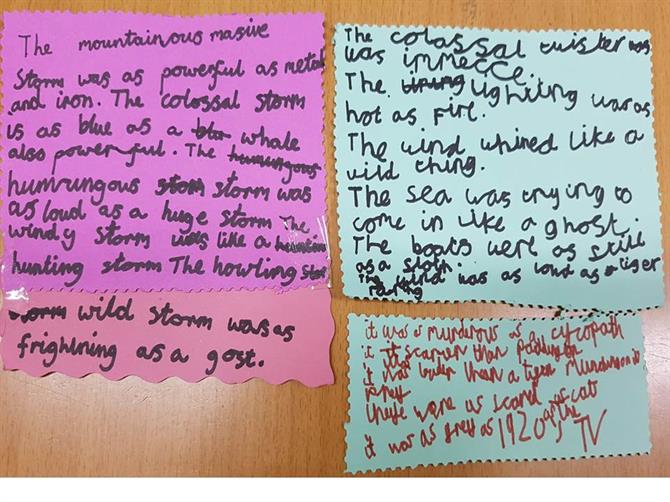 The mountainous masive
Storm was as powerful as metal
and iron. The colossal storm
is as blue as a blu whale
also powerful. The humungous
humrungous storm storm was
as loud as a huge storm The
windy storm was like a
hunting storm The howling
storm wild storm was as
frightning as a gost.
The colossal twister was
was immecce.
The lighting was as
hot as fire.
The wind whined like a
wild thing.
The sea was trying to
come in like a ghost.
The boats were as still
as a sloth
The wind was as loud as a tiger
it was as murderous as a cycopath
it scarier than
it was louder than a tiger
prey
these were as scared as cat
it was as grey as 1920s
TV